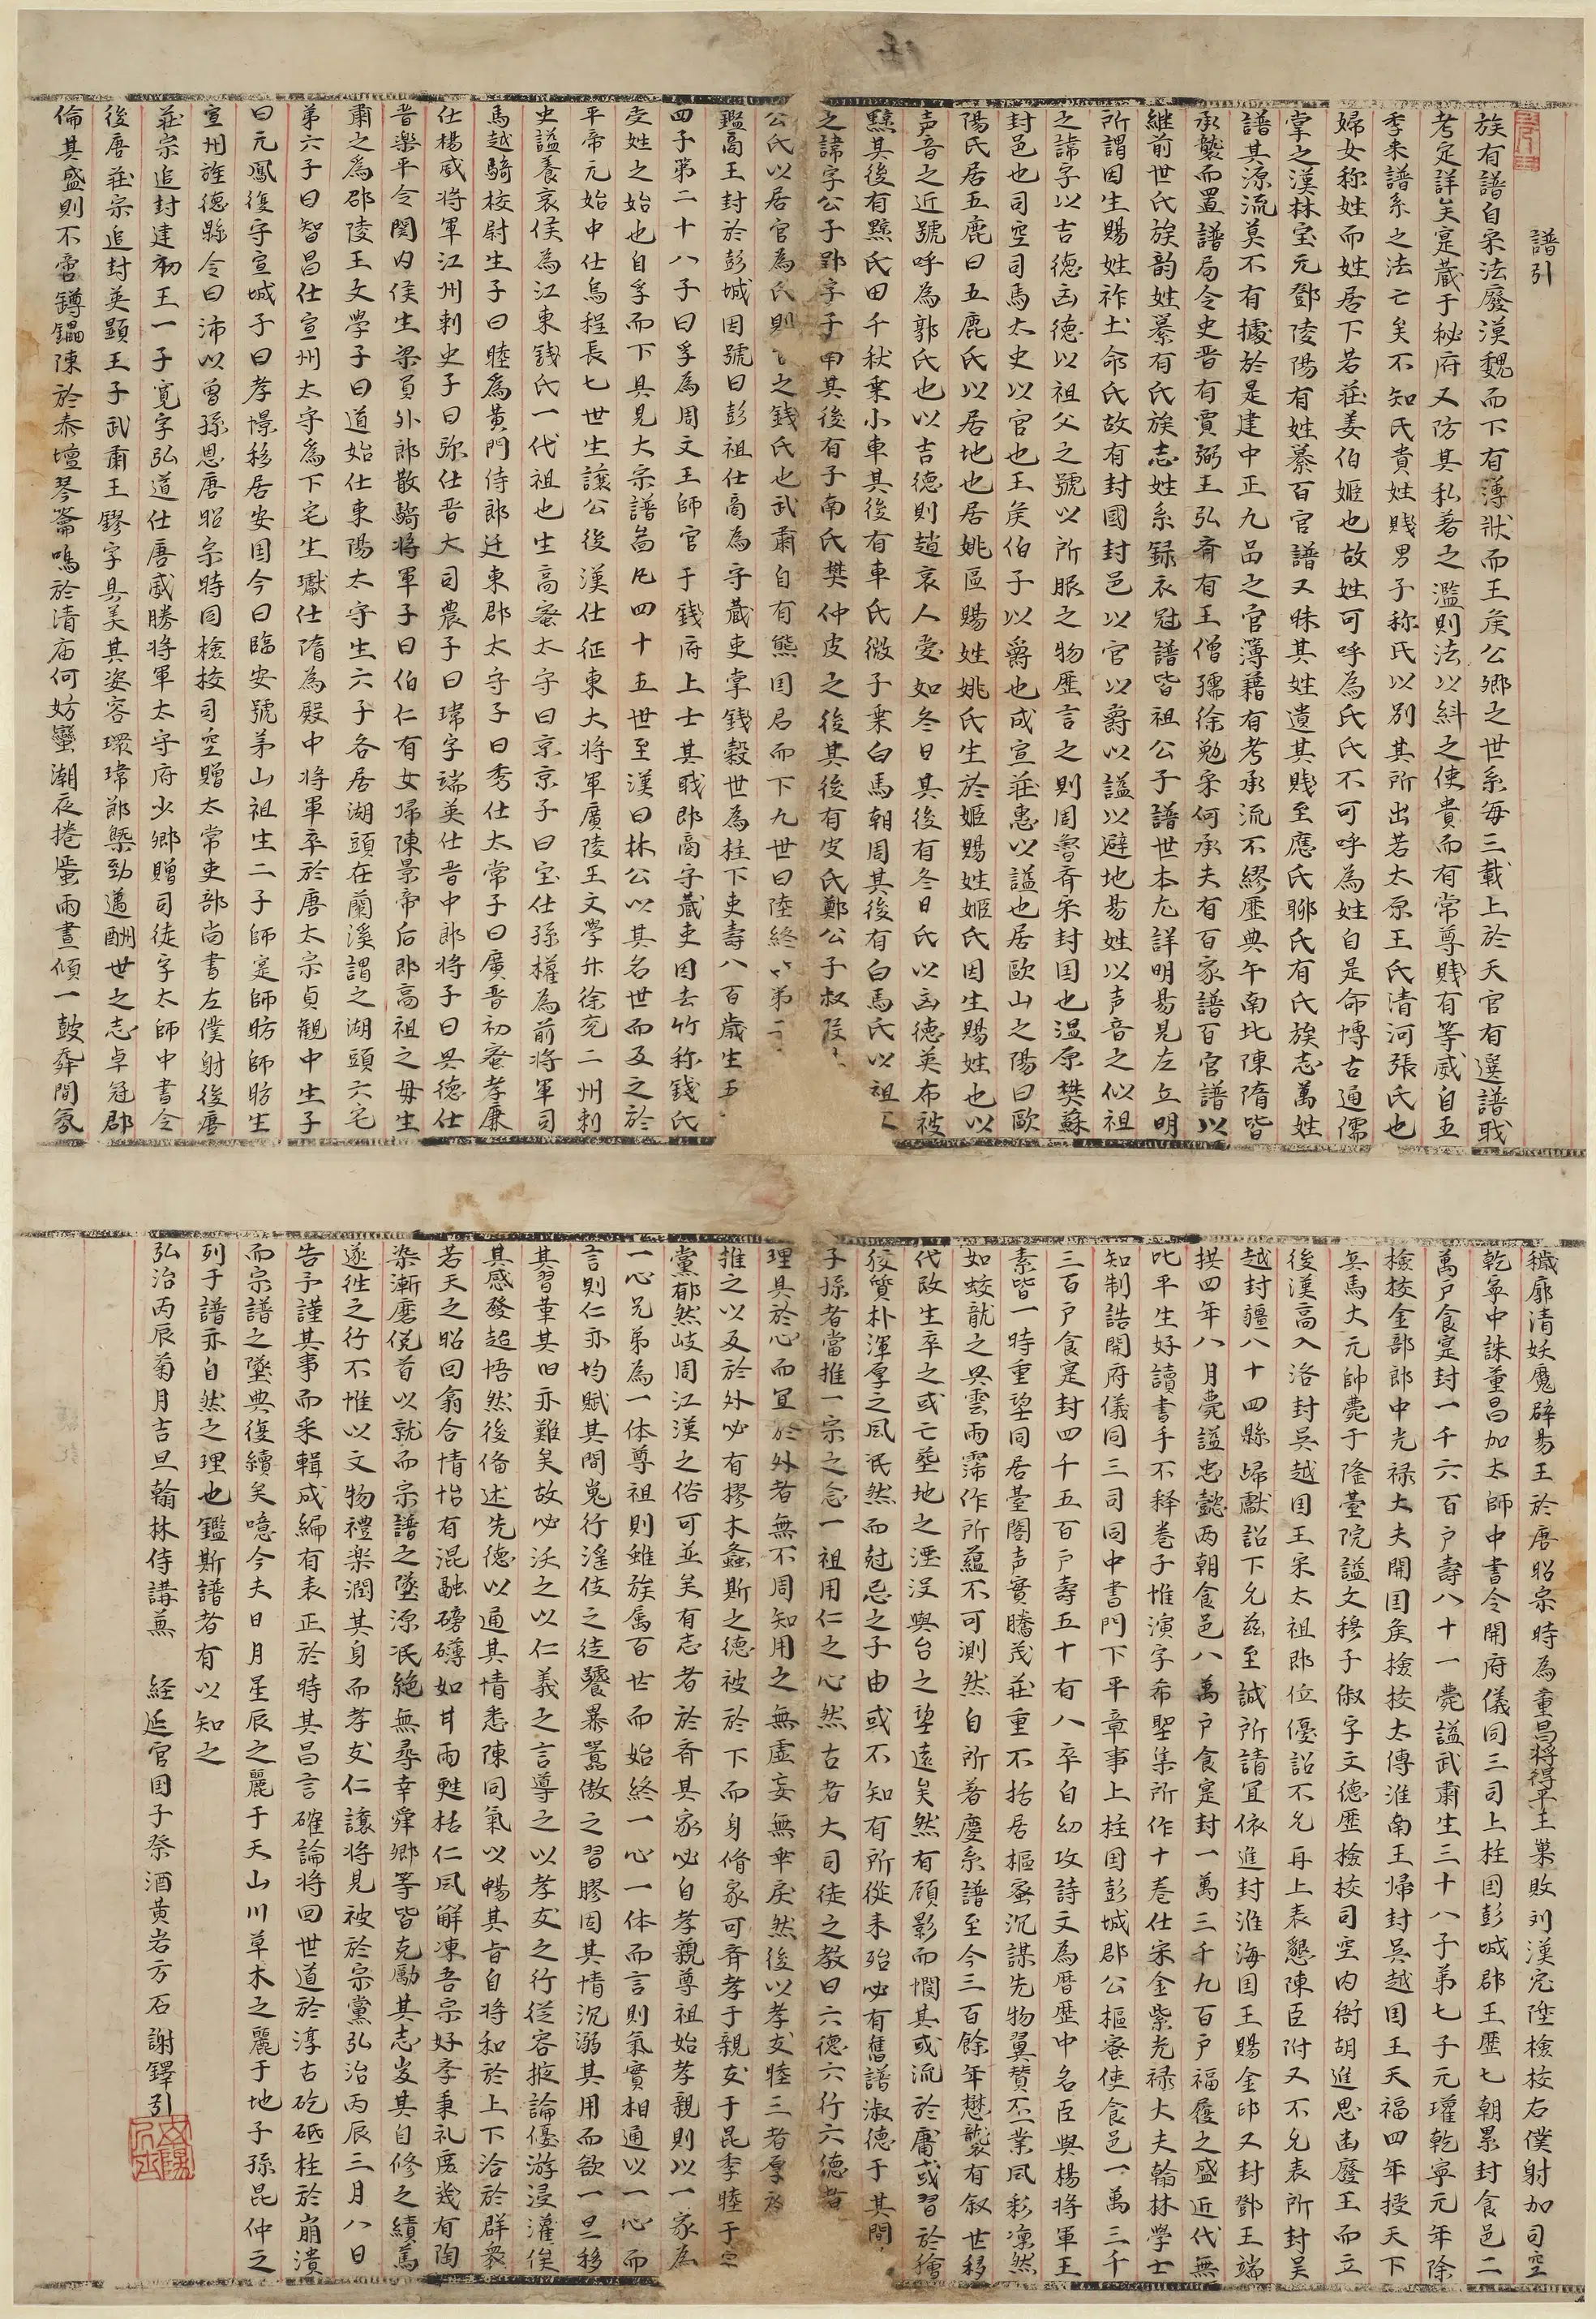 譜引
族有譜自宗法廢漢魏而下有簿狀而王矦公鄉之世系每三載上於天官有選譜戝
考定詳矣寔藏于秘府又防其私著之濫則法以糾之使貴而有常尊賤有等威自五
季来譜系之法亡矣不知氏貴姓賤男子称氏以别其所出若太原王氏清河張氏也
婦女称姓而姓居下若莊姜伯姬也故姓可呼為氏氏不可呼為姓自是命博古通儒
掌之漢林宝元鄧陵陽有姓纂百官譜又昧其姓遺其賤至應氏聊氏有氏族志萬姓
譜其源流莫不有據於是建中正九品之官簿藉有考承流不繆歷典午南北陳隋皆
承襲而置譜局令史晋有賈弼王弘斉有王僧孺徐勉宋何承夫有百家譜百官譜以
継前世氏族韵姓纂有氏族志姓系録衣冠譜皆祖公子譜世本尤詳明昜見左丘明
所謂因生賜姓祚土命氏故有封國封邑以官以爵以謚以避地昜姓以声音之似祖
之諱字以吉德凶德以祖父之號以所服之物歷言之則周魯斉宋封国也温原樊蘇
封邑也司空司馬太史以官也王矦伯子以爵也成宣莊惠以謚也居歐山之陽曰歐
陽氏居五鹿曰五鹿氏以居地也居姚區賜姓姚氏生於姬賜姓姬氏因生賜姓也以
声音之近號呼為郭氏也以吉德則趙衰人愛如冬日其後有冬日氏以凶德英布被
黥其後有黥氏田千秋乗小車其後有車氏微子乗白馬朝周其後有白馬氏以祖
之諱字公子郢字子南其後有子南氏樊仲皮之後其後有皮氏鄭公子叔段
公氏以居官為氏則之錢氏也武肅自有熊国君而下九世曰陸終第
鑑高王封於彭城因號曰彭祖仕商為守藏吏掌錢穀世為柱下吏壽八百歲生五
四子第二十八子曰孚為周文王師官于錢府上士其戝即商守藏吏因去竹称錢氏
受姓之始也自孚而下具見大宗譜啚凡四十五世至漢曰林公以其名世而及之於
平帝元始中仕烏程長七世生讓公後漢仕征東大将軍廣陵王文學升徐兖二州刺
史謚養哀侯為江東錢氏一代祖也生高蜜太守曰京京子曰宝仕孫權為前将軍司
馬越騎校尉生子曰睦為黄門侍郎迁東郡太守子曰秀仕太常子曰廣晋初蜜孝廉
仕楊威将軍江州刺史子曰弥仕晋大司農子曰瑋字端英仕晋中郎将子曰興德仕
晋樂平令関内侯生梁員外郎散騎将軍子曰伯仁有女帰陳景帝后即高祖之母生
肅之為邵陵王文學子曰道始仕東陽太守生六子各居湖頭在蘭溪謂之湖頭六宅
第六子曰智昌仕宣州太守為下宅生瓛仕隋為殿中将軍卒於唐太宗貞觀中生子
曰元鳳復守宣城子曰孝憬移居安国今曰臨安號茅山祖生二子師寔師昉師昉生
宣州旌德縣令曰沛以曾孫恩唐昭宗時国檢挍司空贈太常吏部尚書左僕射後唐
莊宗追封建初王一子寛字弘道仕唐威勝将軍太守府少鄉贈司徒字太師中書令
後唐莊宗追封英顕王子武肅王鏐字具美其姿容環瑋郎槩勁邁酬世之志卓冠郡
倫其盛則不啻鐏鑘陳於泰壇琴龠鳴於清庙何妨蠻潮夜捲蜑雨晝傾一鼓桴間氛
穢廓清妖魔辟昜王於唐昭宗時為董昌将得平王巢敗刘漢宏陞檢挍右僕射加司空
乾寧中誅董昌加太師中書令開府儀同三司上柱国彭城郡王歷七朝累封食邑二
萬戶食寔封一千六百戶壽八十一薨謚武肅生三十八子第七子元瓘乾寧元年除
檢挍金部郎中光禄大夫開国矦檢挍太傅淮南王帰封吳越国王天福四年授天下
兵馬大元帥薨于隆臺院謚文穆子俶字文德歷檢挍司空内衙胡進思凾廢王而立
後漢高入洛封吳越国王宋太祖即位優詔不允再上表懇陳臣附又不允表所封吳
越封疆八十四縣帰獻詔下允兹至誠所請宜依進封淮海国王賜金印又封鄧王端
拱四年八月薨謚忠懿两朝食邑八萬戶食寔封一萬三千九百戶福履之盛近代無
比平生好讀書手不释巻子惟演字希聖集所作十巻仕宋金紫光禄大夫翰林學士
知制誥開府儀同三司同中書門下平章事上柱国彭城郡公樞宻使食邑一萬三千
三百戶食寔封四千五百戶壽五十有八卒自幼攻詩文為暦歷中名臣與楊将軍王
素皆一時重望同居基閣声實騰茂莊重不括居樞蜜沉謀先物翼賛丕業風彩凜然
如蛟龍之興雲雨霈作所蘊不可測然自所著慶系譜至今三百餘年懋襲有叙世移
代改生卒之或亡塟地之湮没輿台之望遠矣然有顾影而憫其或流於庸或習於獪
狡質朴渾厚之風泯然而尅忌之子由或不知有所從来殆必有舊譜淑德于其間
子孫者當推一宗之念一祖用仁之心然古者大司徒之教曰六德六行六德者
理具於心而宜於外者無不周知用之無虚妄無乖戾然後以孝友睦三者厚於
推之以及於外必有樛木螽斯之德被於下而身脩家可斉孝于親友于昆季睦于宗
黨郁然岐周江漢之俗可並矣有志者於斉其家必自孝親尊祖始孝親則以一家為
一心兄弟為一体尊祖則雖族属百世而始終一心一体而言則氣實相通以一心而
言則仁亦均賦其間嵬行滛伎之徒饕暴嚚傲之習膠固其情沉溺其用而欲一旦移
其習革其旧亦難矣故必沃之以仁義之言導之以孝友之行從容掖論優游浸灌俟
其感發超悟然後俻述先德以通其情悉陳同氣以暢其旨自将和於上下洽於群衆
若天之昭回翕合情怡有混融磅礴如甘雨甦枯仁風解凍吾宗好季秉礼庻幾有陶
染漸磨俛首以就而宗譜之墜源泯絶無尋幸舜鄉等皆克勵其志岌其自修之績篤
遂徃之行不惟以文物禮楽潤其身而孝友仁讓将見被於宗黨弘治丙辰三月八日
告予謹其事而釆輯成編有表正於時其昌言確論将回世道於淳古矻砥柱於崩潰
而宗譜之墜典復續矣噫今夫日月星辰之麗于天山川草木之麗于地子孫昆仲之
列于譜亦自然之理也鑑斯譜者有以知之
弘治丙辰菊月吉旦翰林侍講兼 経筵官国子祭酒黄岩方石謝鐸引